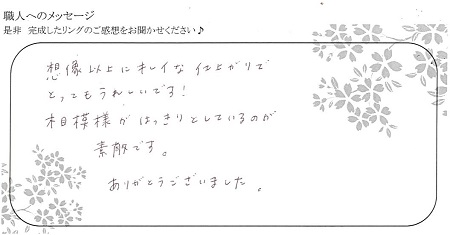 職人へのメッセージ
是非 完成したリングのご感想をお聞かせください♪
想像以上にキレイな仕上がりで
とってもうれしいです！
相模様がはっきりとしているのが
素敵です。
ありがとうございました。